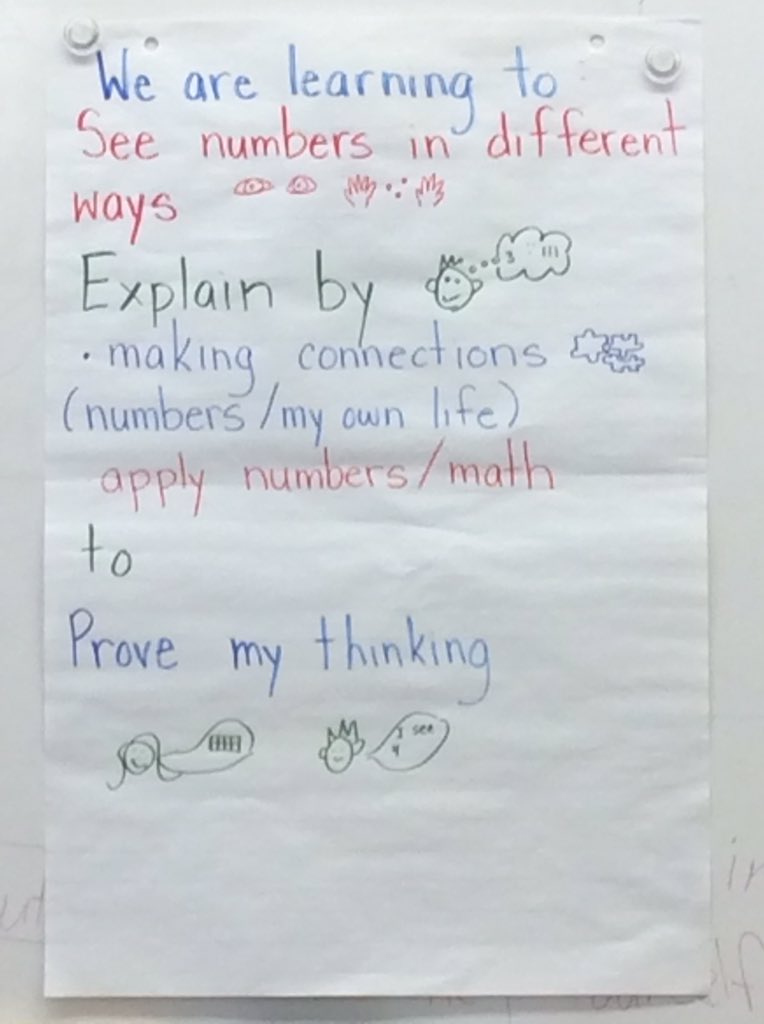 We are learning to
See numbers in different
ways
3
Explain by
• making connections
(numbers/my own life)
apply numbers/math
to
Prove my thinking
I see
4
in